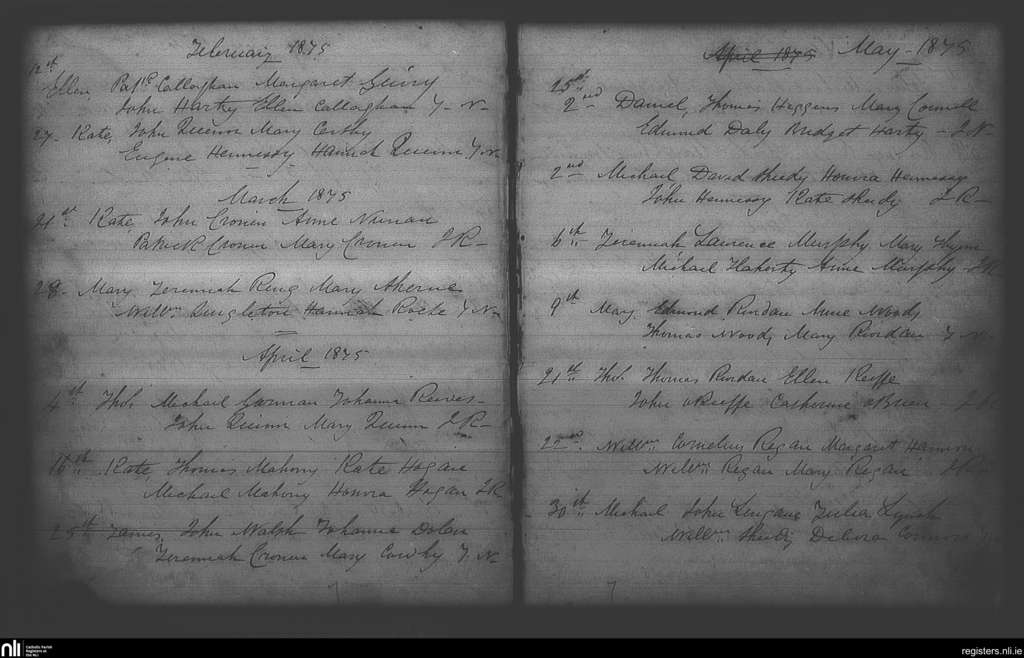 February 1875
12th
Ellen Patk Callaghan Margaret
John Harty Ellen Callaghan J. N
27 Kate, John Quinn Mary
Eugene Hennessy Hannah Quinn J. N
March 1875
21st Kate, John Cronin Anne Nunan
Patrick Cronin Mary Cronin J R
28 Mary Jeremiah Ring Mary Aherne
Willm Singleton Hannah Roche J N
April 1875
4th Thos. Michael Gorman Johanna Reeves
John Quinn Mary Quinn J R
Kate, Thomas Mahony Kate Hogan
Michael Mahony Honora Hogan J R
25th James, John Walsh Johanna Dolen
Jeremiah Cronin Mary J. N
April 1875 May - 1875
25th
2nd Daniel, Thomas Heggans Mary Connell
Edmund Daly Bridget Harty - J N
2nd Michael David Sheedy Honora Hennessy
John Hennessy Kate Sheedy J R
6th Jeremiah Laurence Murphy Mary
Michael Flaherty Anne Murphy J R
9th Mary Edmund Riordan Anne Woods
Thomas Woods Mary Riordan J N
21st Thos. Thomas Riordan Ellen Keeffe
John O'Keeffe Catherine O'Brien J R
22nd Willm Cornelius Regan Margaret Hannon
Willm Regan Mary Regan J R
30th Michael John Lingane Julia Lynch
Willm Sheedy Debora Connors
nli
Catholic Parish
Registers at
the NLI
registers.nli.ie